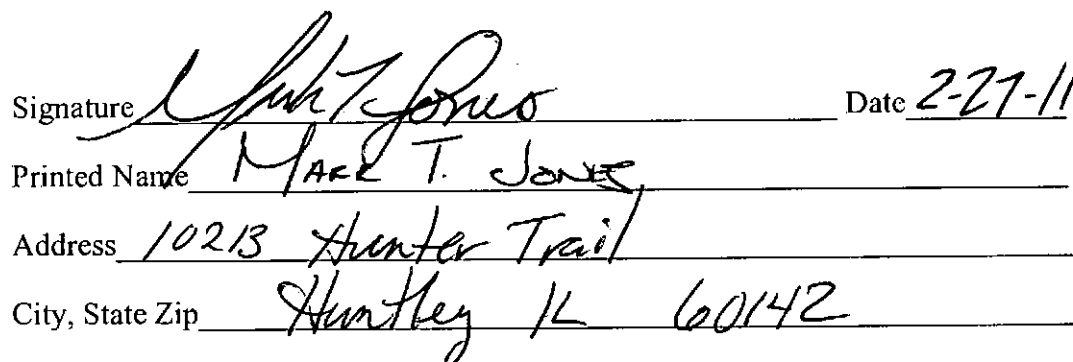 Signature Mark T. Jones Date 2-27-11
Printed Name MARK T. JONES
Address 10213 Hunter Trail
City, State Zip Huntley IL 60142